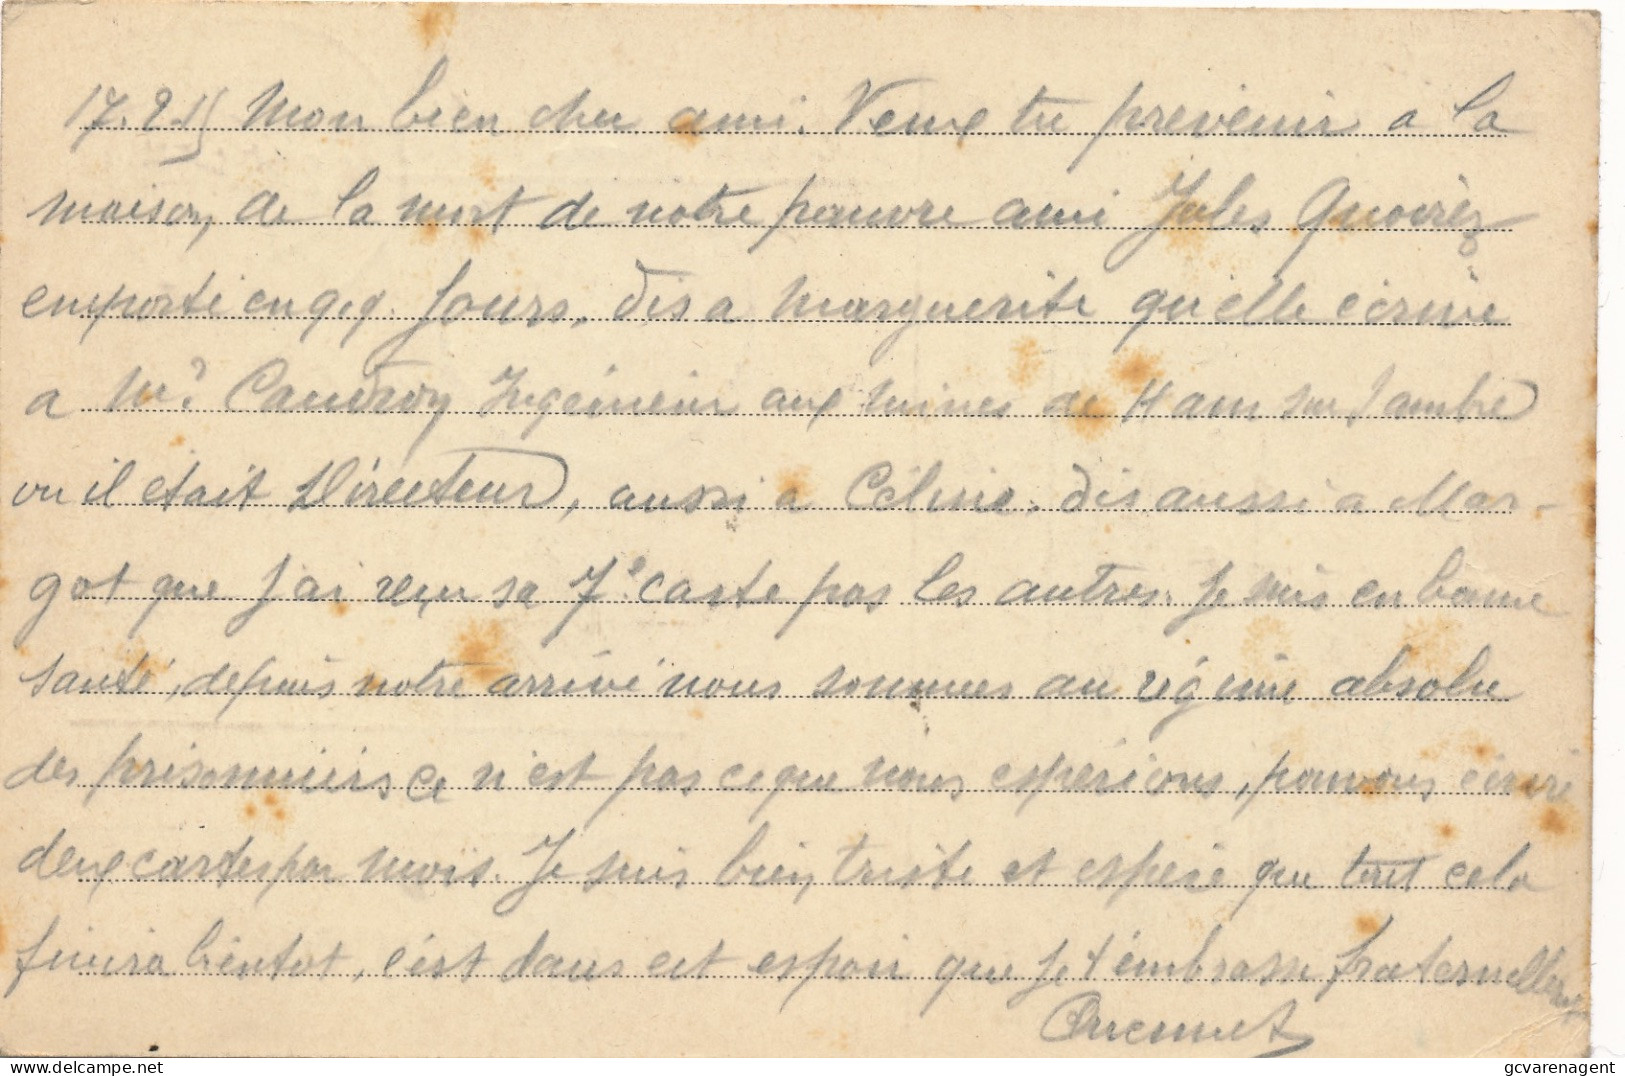 17.2.15 Mon bien cher ami. Veux tu prevenir a la
maison, de la mort de notre pauvre ami Jules Quoirez
emporté en q.q. Jours, dis a Marguerite qu'elle écrive
a Mr. Caudroy Ingénieur aux mines de Ham sur Sambre
ou il etait Directeur, aussi a Céline. dis aussi a Mar-
got que J'ai reçu sa 7e carte pas les autres. Je suis en bonne
santé, depuis notre arrivé nous sommes au régime absolu
des prisonniers ce n'est pas ce que nous espérions, pouvons écrire
deux cartes par mois. Je suis bien triste et espère que tout cela
finira bientot, c'est dans cet espoir que Je t'embrasse fraternellement
delcampe.net
gcvarenagent